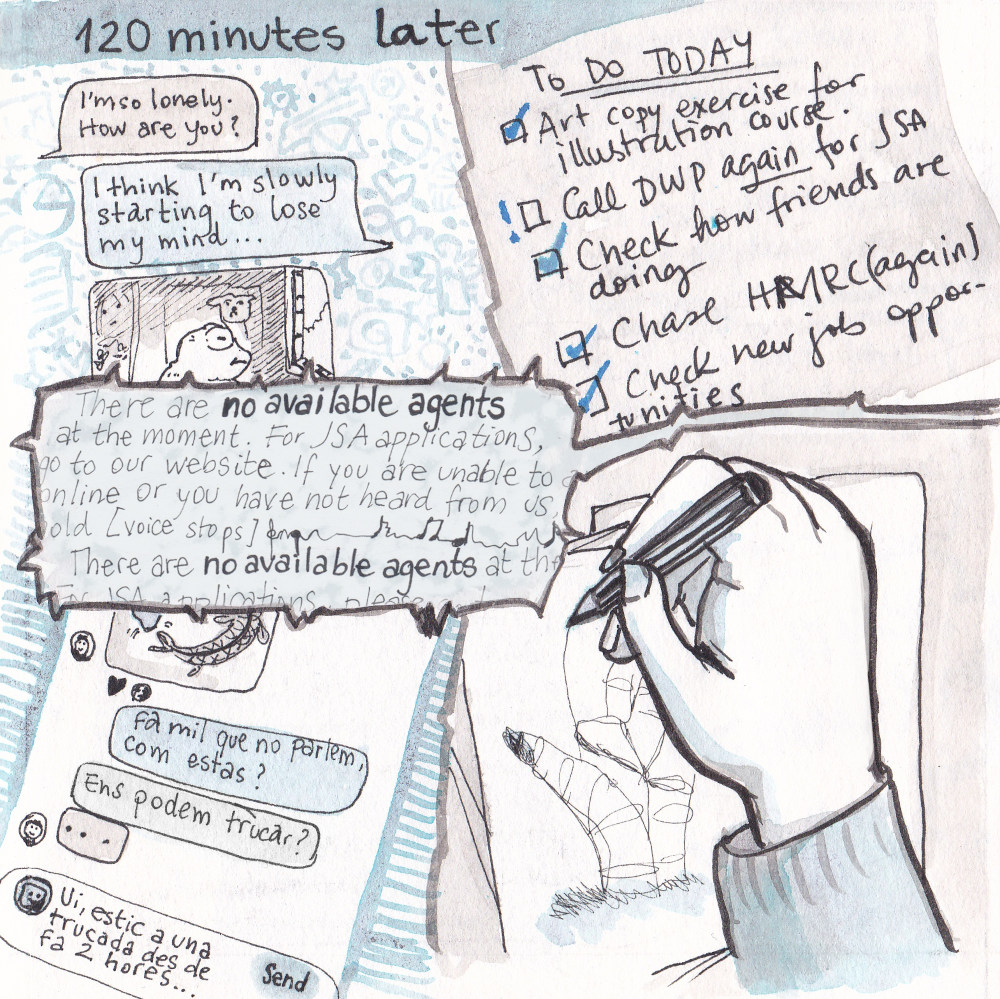 120 minutes later
I'm so lonely.
How are you?
I think I'm slowly
starting to lose
my mind...
TO DO TODAY
Art copy exercise for
illustration course.
Call DWP again for JSA
Check how friends are
doing
Chase HMRC (again)
Check new job oppor-
tunities
There are no available agents
at the moment. For JSA applications,
go to our website. If you are unable to
online or you have not heard from us,
old [voice stops]
There are no available agents at the
For JSA applications, please
Fa mil que no parlem,
com estas?
Ens podem trucar?
...
Ui, estic a una
trucada des de
fa 2 hores...
Send